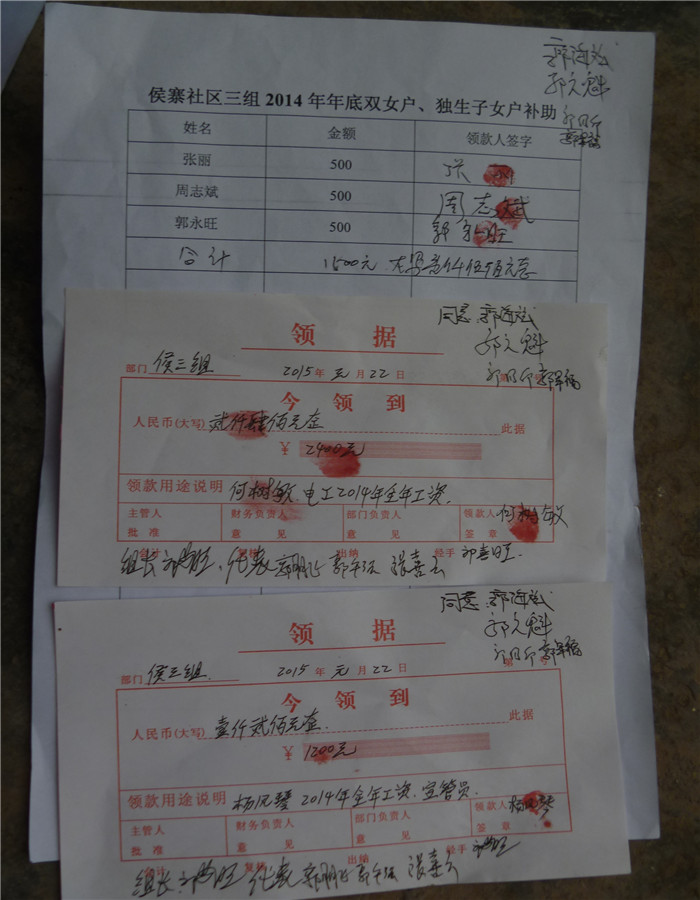 郭海斌
郭文魁
侯寨社区三组2014年年底双女户、独生子女户补助
姓名 金额 领款人签字
张丽 500 张
周志斌 500 周志斌
郭永旺 500 郭永旺
合计 1500元 大写壹仟伍佰元整
同意 郭海斌
郭文魁
领 据
部门 侯三组 2015年元月22日
今领到
人民币(大写)贰仟肆佰元整 此据
¥ 2400元
领款用途说明 何树敏 电工2014年全年工资.
主管人 财务负责人 部门负责人 领款人 何树敏
批准 意见 意见 签章
会计 复核 出纳 经手
组长 代表
同意 郭海斌
郭文魁
领 据
部门 侯三组 2015年元月22日
今领到
人民币(大写)壹仟贰佰元整. 此据
¥ 1200元
领款用途说明 杨凤琴 2014年全年工资.宣管员.
主管人 财务负责人 部门负责人 领款人 杨凤琴
批准 意见 意见 签章
会计 复核 出纳 经手
组长 代表